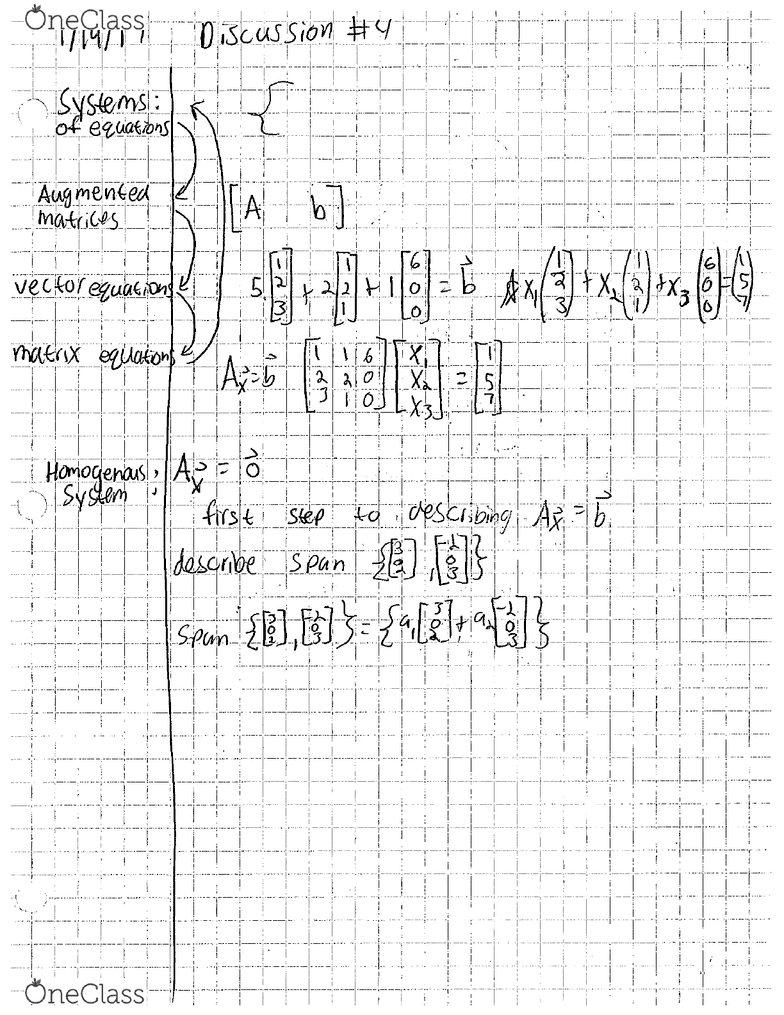 OneClass
1/19/17 Discussion #4
Systems:
of equations
Augmented
matrices
[A b]
vector equations
5[1 2 3] + 2[1 2 1] + 1[6 0 0] = b⃗ x₁(1 2 3) + x₂(1 2 1) + x₃(6 0 0) = (1 5 7)
matrix equations
Ax⃗ = b⃗ [1 1 6; 2 2 0; 3 1 0][x₁ x₂ x₃] = [1 5 7]
Homogenous
System : Ax⃗ = 0⃗
first step to describing Ax⃗ = b⃗
describe span {[3 0 2], [-2 0 3]}
span {[3 0 2], [-2 0 3]} = {a₁[3 0 2] + a₂[-2 0 3]}
OneClass